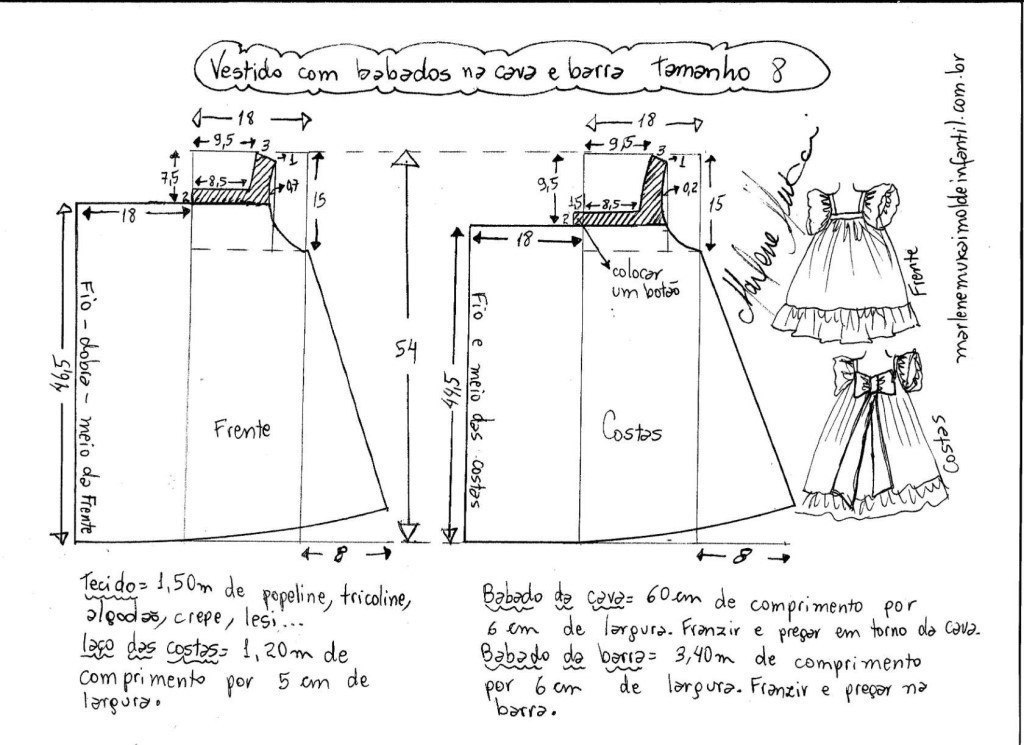 Vestido com babados na cava e barra tamanho 8
18
9,5
3
1
7,5
8,5
0,7
2
15
18
46,5
Fio - dobra - meio da Frente
Frente
8
54
18
9,5
3
1
9,5
1,5
8,5
0,2
2
15
18
colocar
um botão
44,5
Fio e meio das costas
Costas
8
Marlene Mukai
Frente
Costas
marlenemukaimoldeinfantil.com.br
Tecido = 1,50m de popeline, tricoline,
algodão, crepe, lesi...
laço das costas = 1,20m de
comprimento por 5 cm de
largura.
Babado da cava = 60 cm de comprimento por
6 cm de largura. Franzir e pregar em torno da cava.
Babado da barra = 3,40m de comprimento
por 6 cm de largura. Franzir e pregar na
barra.